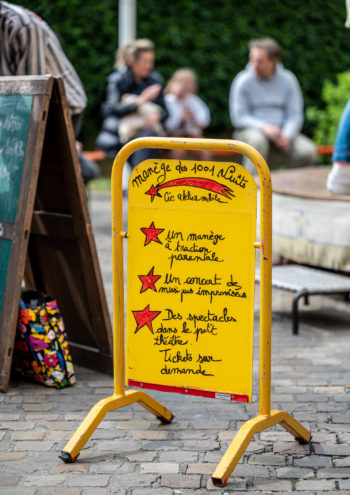 manège des 1001 Nuits
Cie aktarutile
Un manège
à traction
parentale
Un concert de
musiques improvisées
Des spectacles
dans le p'tit
théatre.
Tickets sur
demande